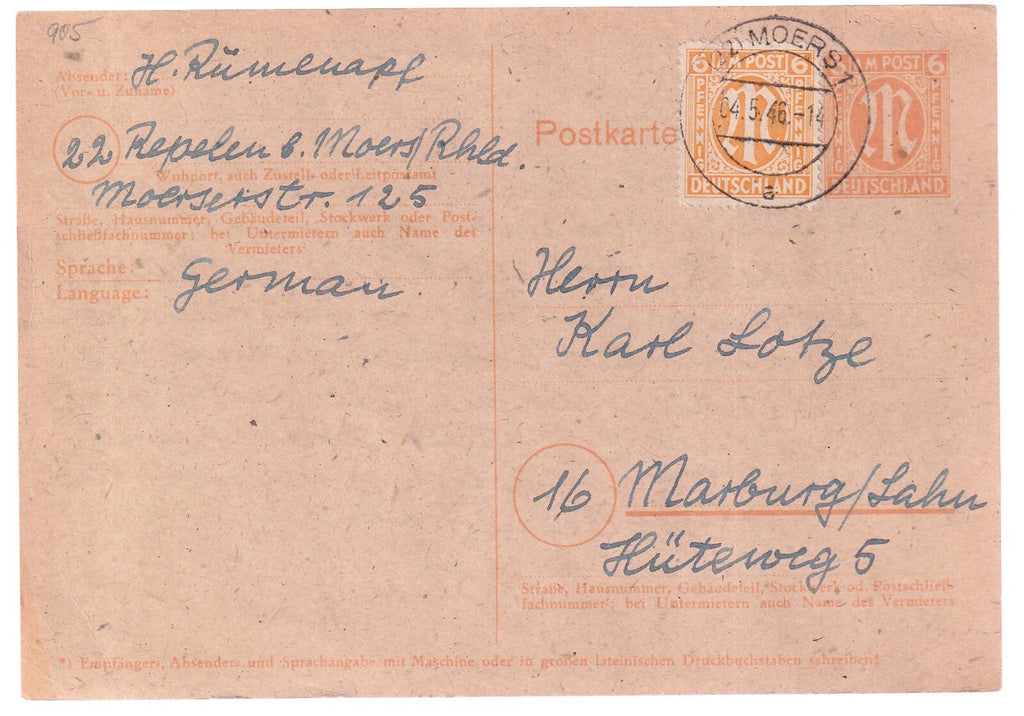 905
Absender: H. Rümenapf
(Vor- u. Zuname)
22 Repelen b. Moers/Rhld.
Wohnort, auch Zustell- oder Leitpostamt
Moerserstr. 125
Straße, Hausnummer, Gebäudeteil, Stockwerk oder Post-
schließfachnummer; bei Untermietern auch Name des
Vermieters
Sprache:
Language: German
Postkarte
6 M POST 6
PFENNIG PFENNIG
M
DEUTSCHLAND
(22) MOERS 1
04.5.46.-14
a
M POST 6
PFENNIG
M
DEUTSCHLAND
Herrn
Karl Lotze
16 Marburg/Lahn
Hüteweg 5
Straße, Hausnummer, Gebäudeteil, Stockwerk od. Postschließ-
fachnummer; bei Untermietern auch Name des Vermieters
*) Empfänger-, Absender- und Sprachangabe mit Maschine oder in großen lateinischen Druckbuchstaben schreiben!